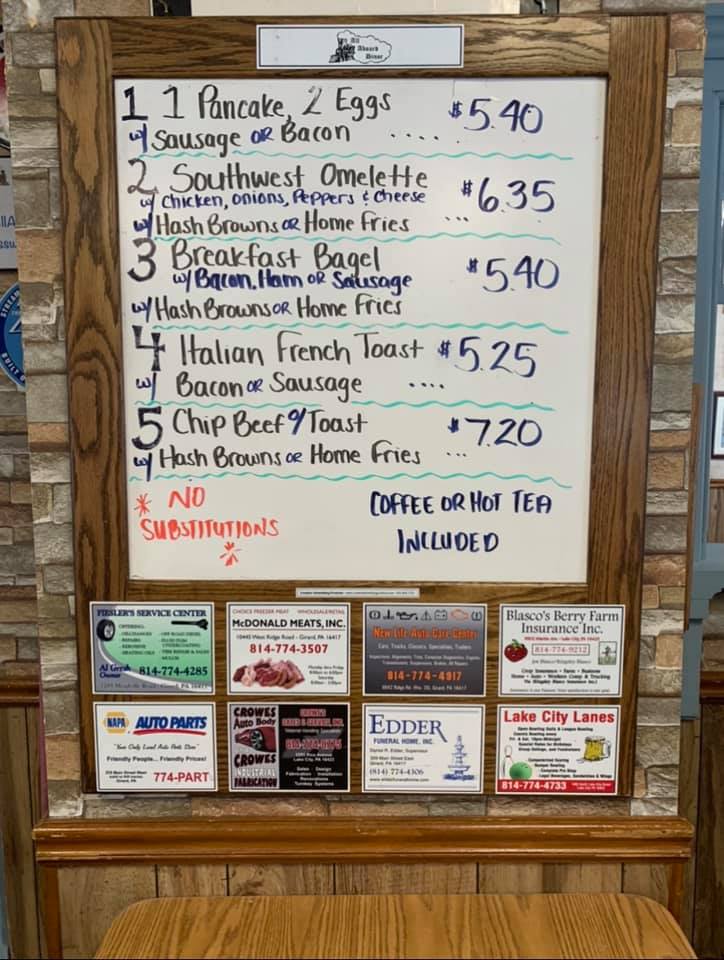 All
Aboard
Diner
1 1 Pancake, 2 Eggs $5.40
w/ Sausage or Bacon ....
2 Southwest Omelette $6.35
w/ Chicken, onions, Peppers & Cheese
w/ Hash Browns or Home Fries ...
3 Breakfast Bagel $5.40
w/ Bacon, Ham or Sausage
w/ Hash Browns or Home Fries
4 Italian French Toast $5.25
w/ Bacon or Sausage ....
5 Chip Beef o/ Toast $7.20
w/ Hash Browns or Home Fries ...
* NO
SUBSTITUTIONS
*
COFFEE OR HOT TEA
INCLUDED
FIESLER'S SERVICE CENTER
Al Gersh
Owner
814-774-4285
CHOICE FREEZER MEAT WHOLESALE/RETAIL
McDONALD MEATS, INC.
10445 West Ridge Road - Girard, PA 16417
814-774-3507
New Life Auto Care Center
Cars, Trucks, Classics, Specialties, Trailers
814-774-4917
Blasco's Berry Farm
Insurance Inc.
814-774-9212
NAPA AUTO PARTS
"Your Only Local Auto Parts Store"
Friendly People... Friendly Prices!
774-PART
CROWES
Auto Body
CROWES
INDUSTRIAL
FABRICATION
Sales Design
Fabrication Installation
Renovations
Turnkey Systems
EDDER
FUNERAL HOME, INC.
Girard, PA 16417
(814) 774-4306
Lake City Lanes
814-774-4733